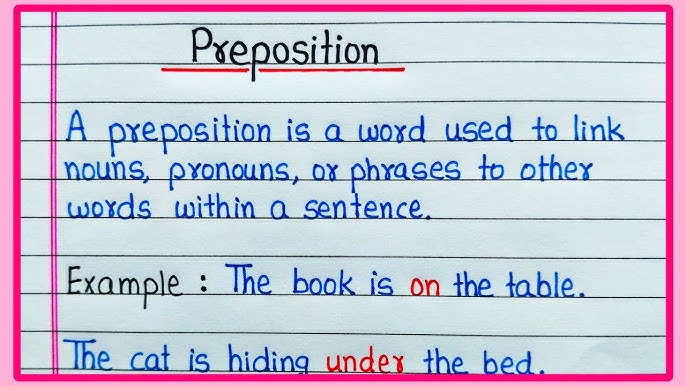 Preposition
A preposition is a word used to link
nouns, pronouns, or phrases to other
words within a sentence.
Example : The book is on the table.
The cat is hiding under the bed.